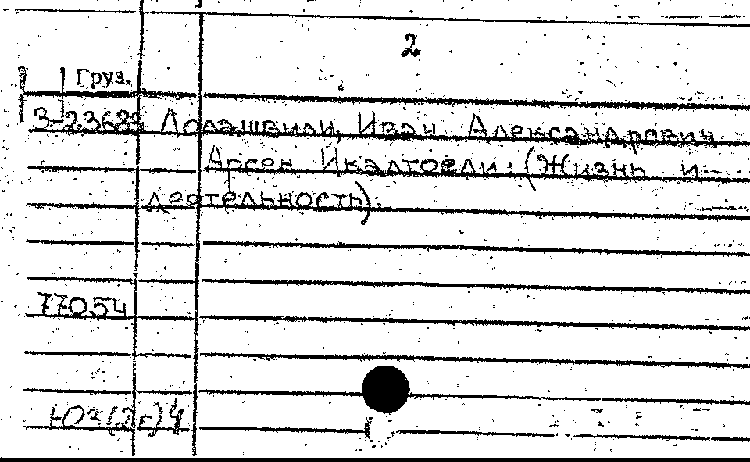 2
Груз.
3-23689 Лолашвили, Иван Александрович
Арсен Икалтоели. (Жизнь и
деятельность).
77054
Юз(2г)4